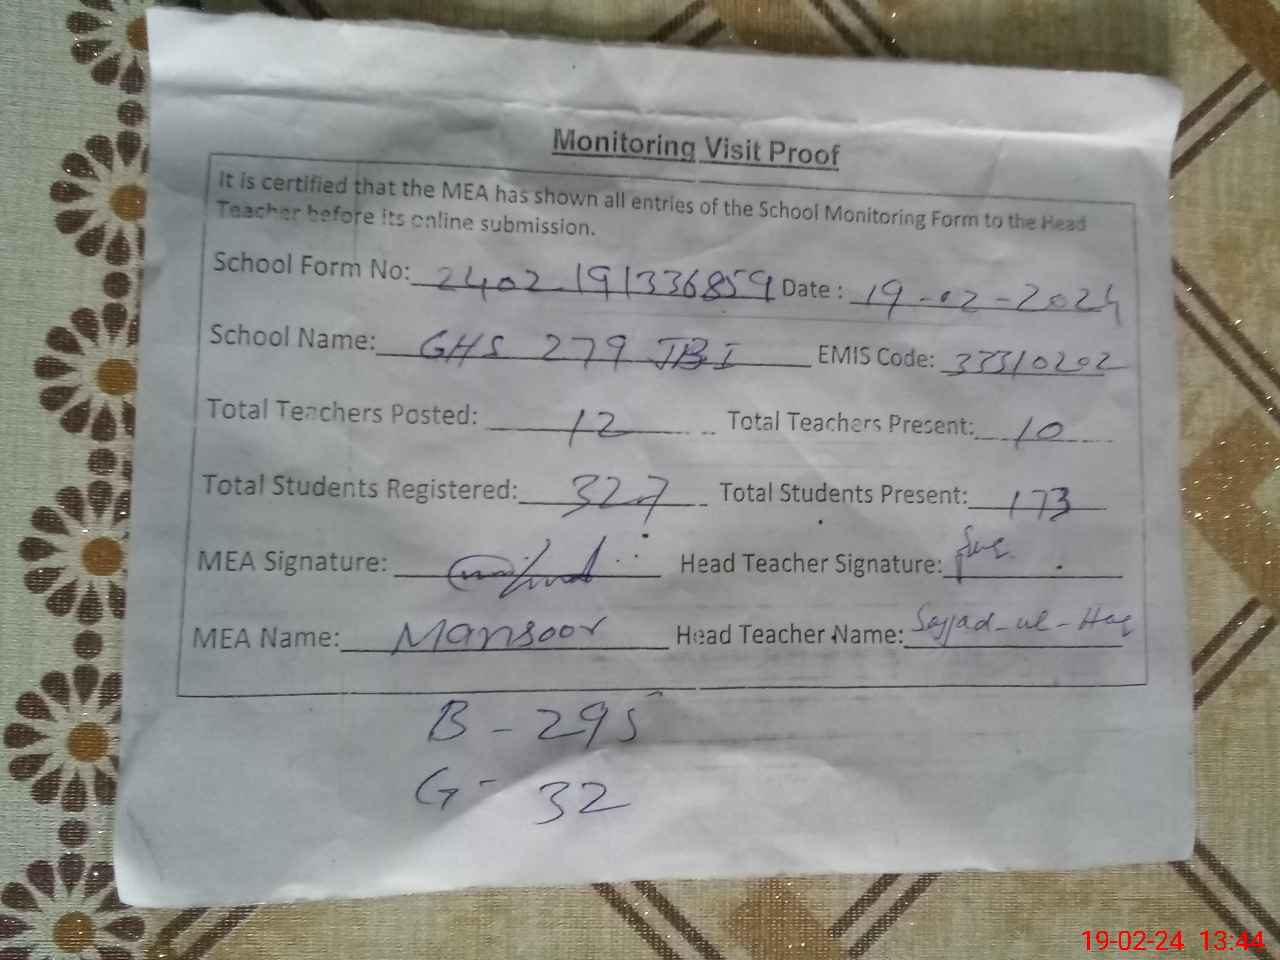 Monitoring Visit Proof
It is certified that the MEA has shown all entries of the School Monitoring Form to the Head
Teacher before its online submission.
School Form No: 2402191336859 Date : 19-02-2024
School Name: GHS 279 JB I EMIS Code: 33310202
Total Teachers Posted: 12 Total Teachers Present: 10
Total Students Registered: 327 Total Students Present: 173
MEA Signature: Head Teacher Signature:
MEA Name: Mansoor Head Teacher Name: Sajjad-ul-Haq
B - 295
G - 32
19-02-24 13:44